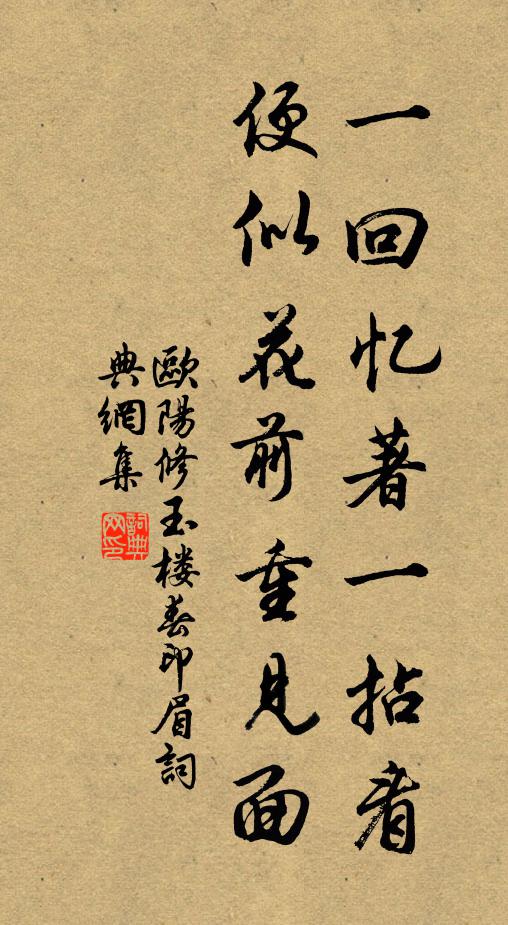 一回忆著一拈看
便似花前重見面
歐陽修玉楼春印眉詞
典網集
詞典网印